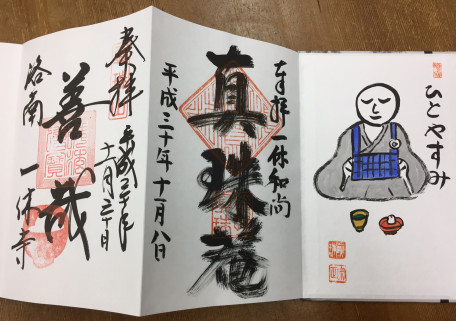 ひとやすみ
奉拝 一休和尚
真珠庵
平成三十年十一月八日
奉拝
平成三十年
十一月三十日
善哉
洛南 一休寺